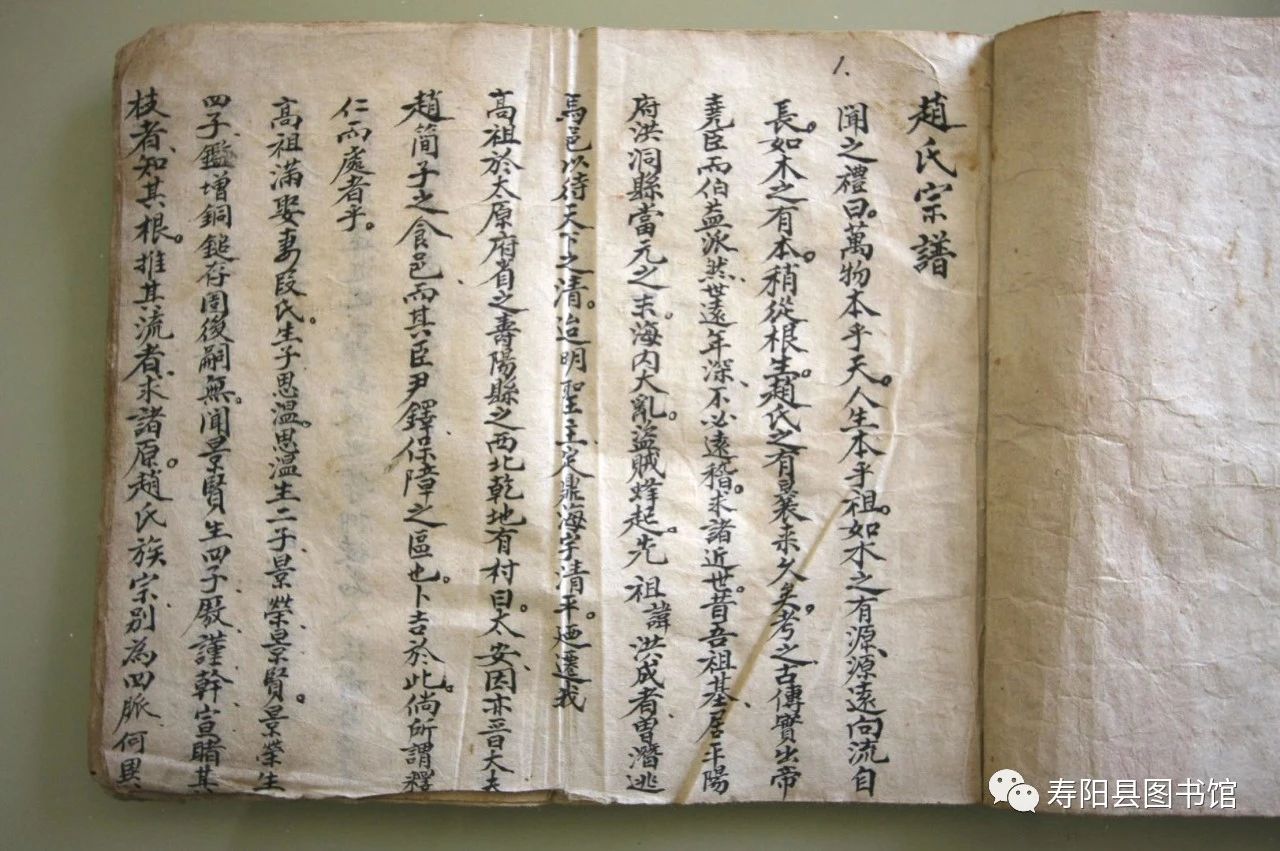 1.
趙氏宗譜
聞之禮曰。萬物本乎天。人生本乎祖。如水之有源。源遠而流自
長。如木之有本。稍從根生。趙氏之有裏來久矣。考之古傳實出帝
堯臣而伯益派。然世遠年深、不必遠稽。求諸近世。昔吾祖基居平陽
府洪洞縣當元之末。海内大亂。盜賊蜂起。先祖諱洪成者曾潛逃
馬邑以待天下之清。迨明聖主定鼎海宇清平。廼遷我
高祖於太原府省之壽陽縣之西北乾地有村曰。太安。因亦晉大夫
趙简子之食邑而其臣尹鐸保障之區也。卜吉於此倘所謂釋
仁而處者乎。
高祖滿娶妻段氏。生子思溫。思溫生二子景榮、景賢。景榮生
四子、鑑增銅鎚存固後嗣無聞。景賢生四子廒、謹、幹、宣。睹其
枝者、知其根。推其流者、求諸原。趙氏族宗别為四脈。何異
寿阳县图书馆